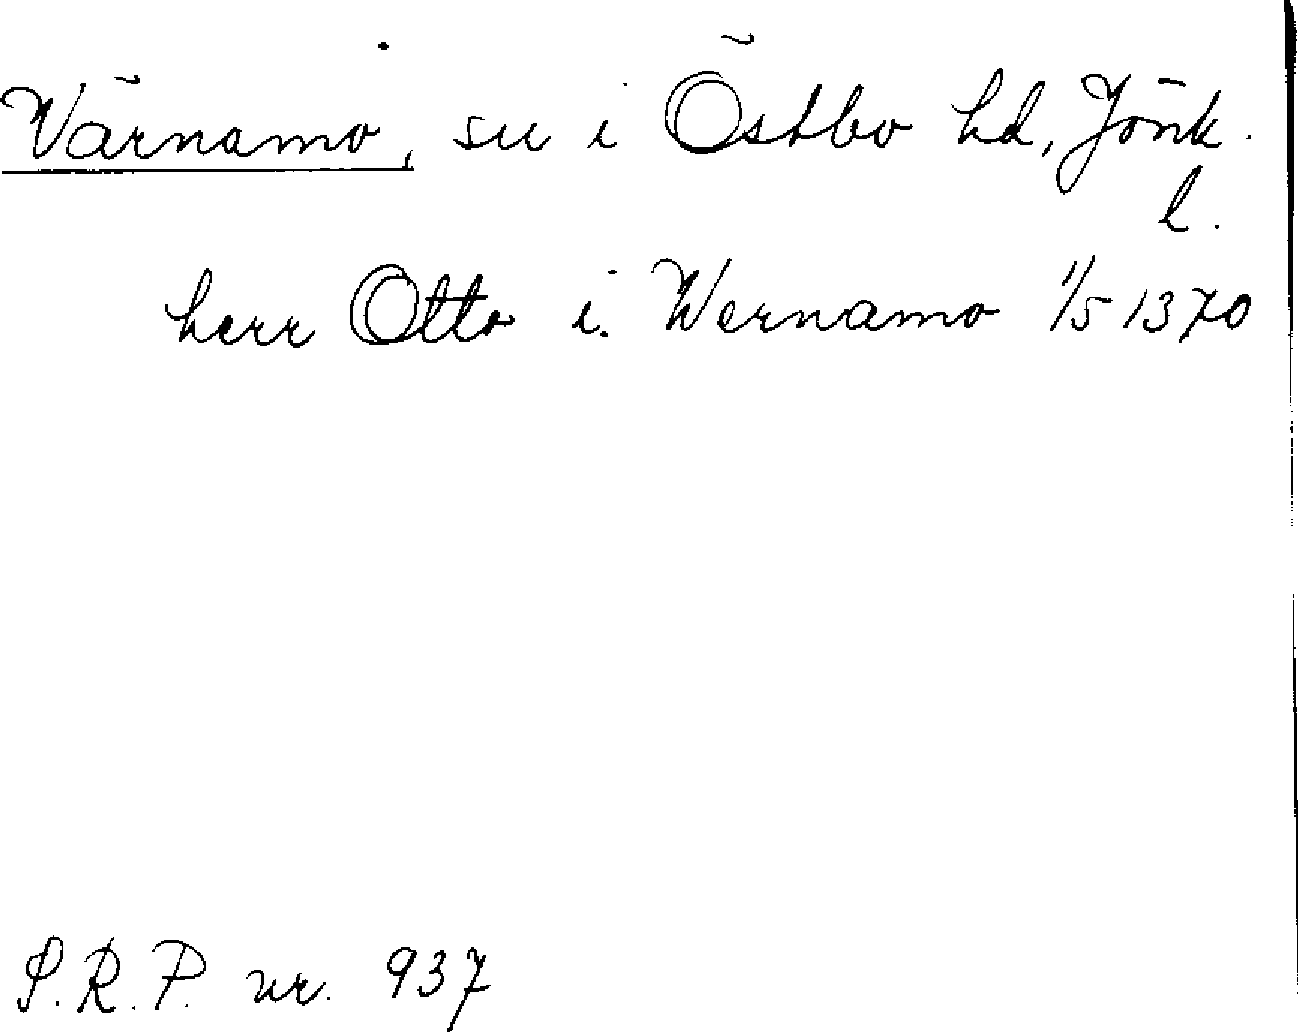 Värnamo, sn i Östbo hd, Jönk.
l.
herr Otto i Wernamo 1/5 1370
S.R.P. nr. 937